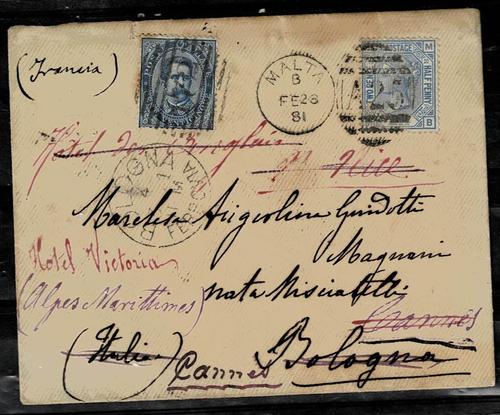 (Francia)
POSTAGE
TWO PENCE HALF PENNY
M
B
MALTA
B
FE 28
81
A25
Hotel
Nice
BOLOGNA
Marchesa Angiolina Guidotti
Magnani
nata
Hotel Victoria
(Alpes Marittimes)
Cannes
(Italia)
Cannes
Bologna